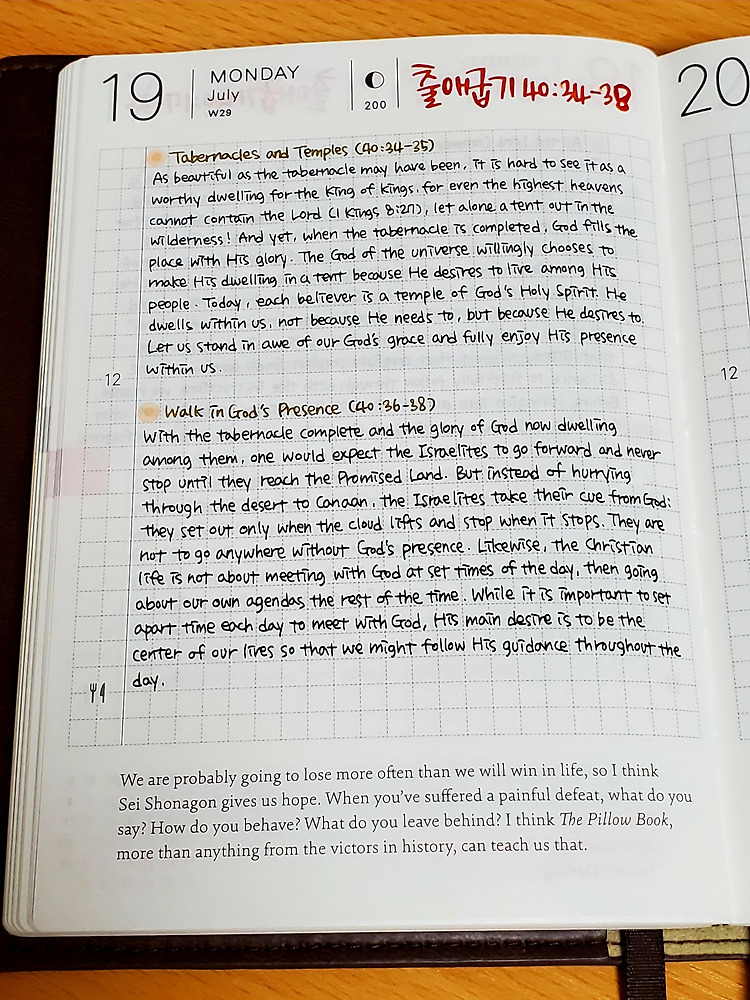 19
MONDAY
July
W29
200
출애굽기 40:34-38
20
Tabernacles and Temples (40:34-35)
As beautiful as the tabernacle may have been, it is hard to see it as a
worthy dwelling for the King of kings, for even the highest heavens
cannot contain the Lord (1 Kings 8:27), let alone a tent out in the
wilderness! And yet, when the tabernacle is completed, God fills the
place with His glory. The God of the universe willingly chooses to
make His dwelling in a tent because He desires to live among His
people. Today, each believer is a temple of God's Holy Spirit. He
dwells within us, not because He needs to, but because He desires to.
Let us stand in awe of our God's grace and fully enjoy His presence
within us.
12
12
Walk in God's Presence (40:36-38)
With the tabernacle complete and the glory of God now dwelling
among them, one would expect the Israelites to go forward and never
stop until they reach the Promised Land. But instead of hurrying
through the desert to Canaan, the Israelites take their cue from God:
they set out only when the cloud lifts and stop when it stops. They are
not to go anywhere without God's presence. Likewise, the Christian
life is not about meeting with God at set times of the day, then going
about our own agendas the rest of the time. While it is important to set
apart time each day to meet with God, His main desire is to be the
center of our lives so that we might follow His guidance throughout the
day.
We are probably going to lose more often than we will win in life, so I think
Sei Shonagon gives us hope. When you've suffered a painful defeat, what do you
say? How do you behave? What do you leave behind? I think The Pillow Book,
more than anything from the victors in history, can teach us that.